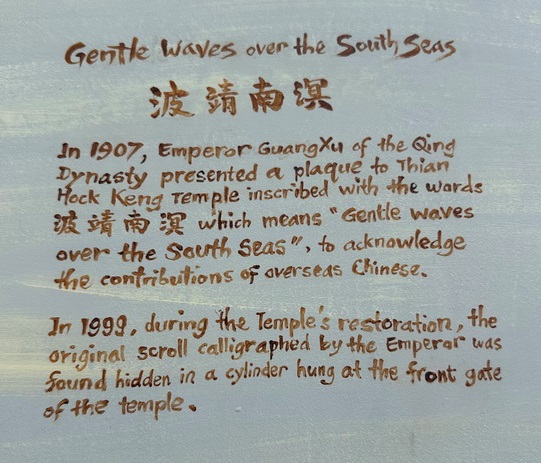 Gentle Waves over the South Seas
波靖南溟
In 1907, Emperor GuangXu of the Qing
Dynasty presented a plaque to Thian
Hock Keng Temple inscribed with the words
波靖南溟 which means "Gentle waves
over the South Seas", to acknowledge
the contributions of overseas Chinese.
In 1999, during the Temple's restoration, the
original scroll calligraphed by the Emperor was
found hidden in a cylinder hung at the front gate
of the temple.